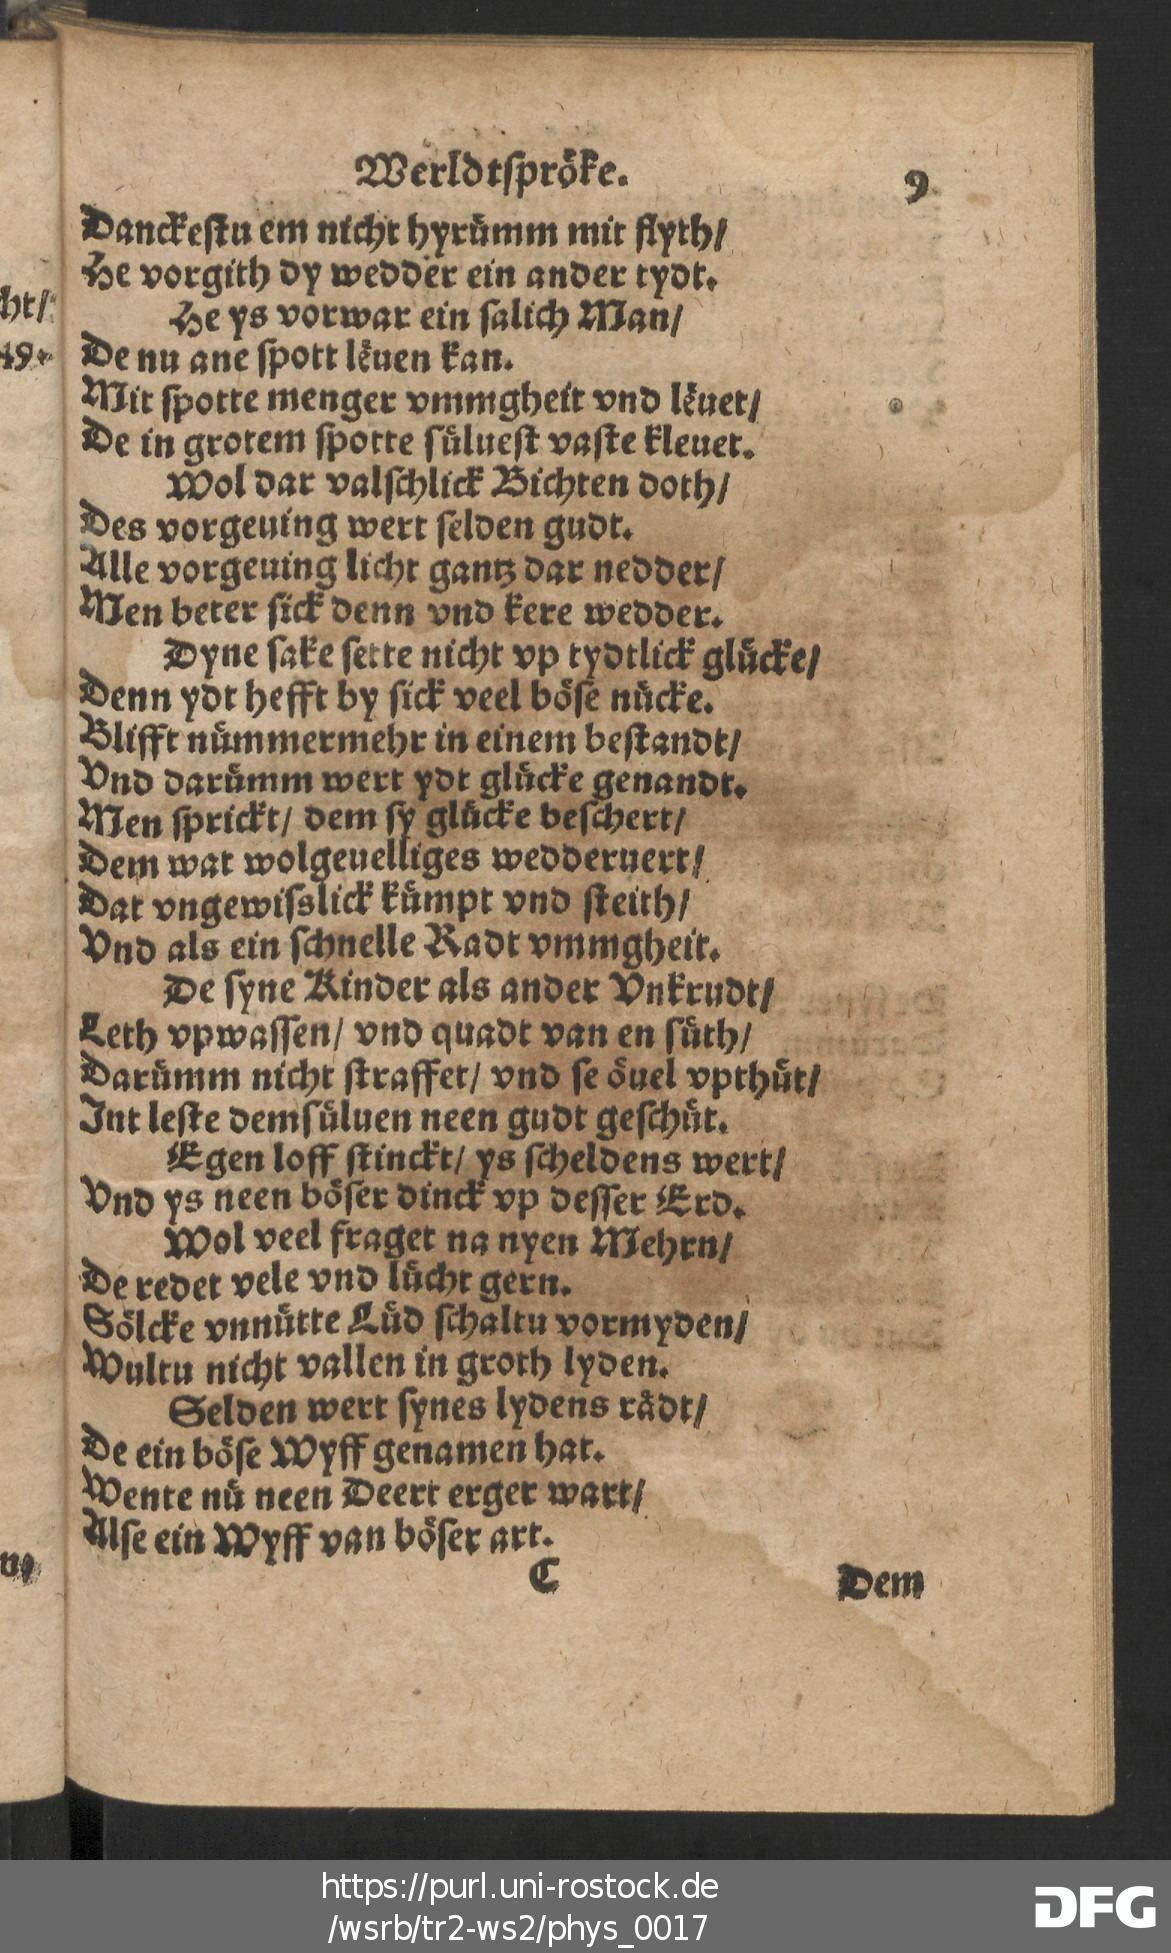 Werldtspröke. 9
Danckestu em nicht hyrümm mit flyth/
He vorgith dy wedder ein ander tydt.
He ys vorwar ein salich Man/
De nu ane spott lëuen kan.
Mit spotte menger vmmgheit vnd lëuet/
De in grotem spotte süluest vaste kleuet.
Wol dar valschlick Bichten doth/
Des vorgeuing wert selden gudt.
Alle vorgeuing licht gantz dar nedder/
Men beter sick denn vnd kere wedder.
Dyne sake sette nicht vp tydtlick glücke/
Denn ydt hefft by sick veel böse nücke.
Blifft nümmermehr in einem bestandt/
Vnd darümm wert ydt glücke genandt.
Men sprickt/ dem sy glücke beschert/
Dem wat wolgeuelliges wedderuert/
Dat vngewisslick kümpt vnd steith/
Vnd als ein schnelle Radt vmmgheit.
De syne Kinder als ander Vnkrudt/
Leth vpwassen/ vnd quadt van en süth/
Darümm nicht straffet/ vnd se öuel vpthüt/
Int leste demsüluen neen gudt geschüt.
Egen loff stinckt/ ys scheldens wert/
Vnd ys neen böser dinck vp desser Erd.
Wol veel fraget na nyen Mehrn/
De redet vele vnd lücht gern.
Sölcke vnnütte Lüd schaltu vormyden/
Wultu nicht vallen in groth lyden.
Selden wert synes lydens rädt/
De ein böse Wyff genamen hat.
Wente nü neen Deert erger wart/
Alse ein Wyff van böser art.
C Dem
ht/
49.
https://purl.uni-rostock.de
/wsrb/tr2-ws2/phys_0017
DFG